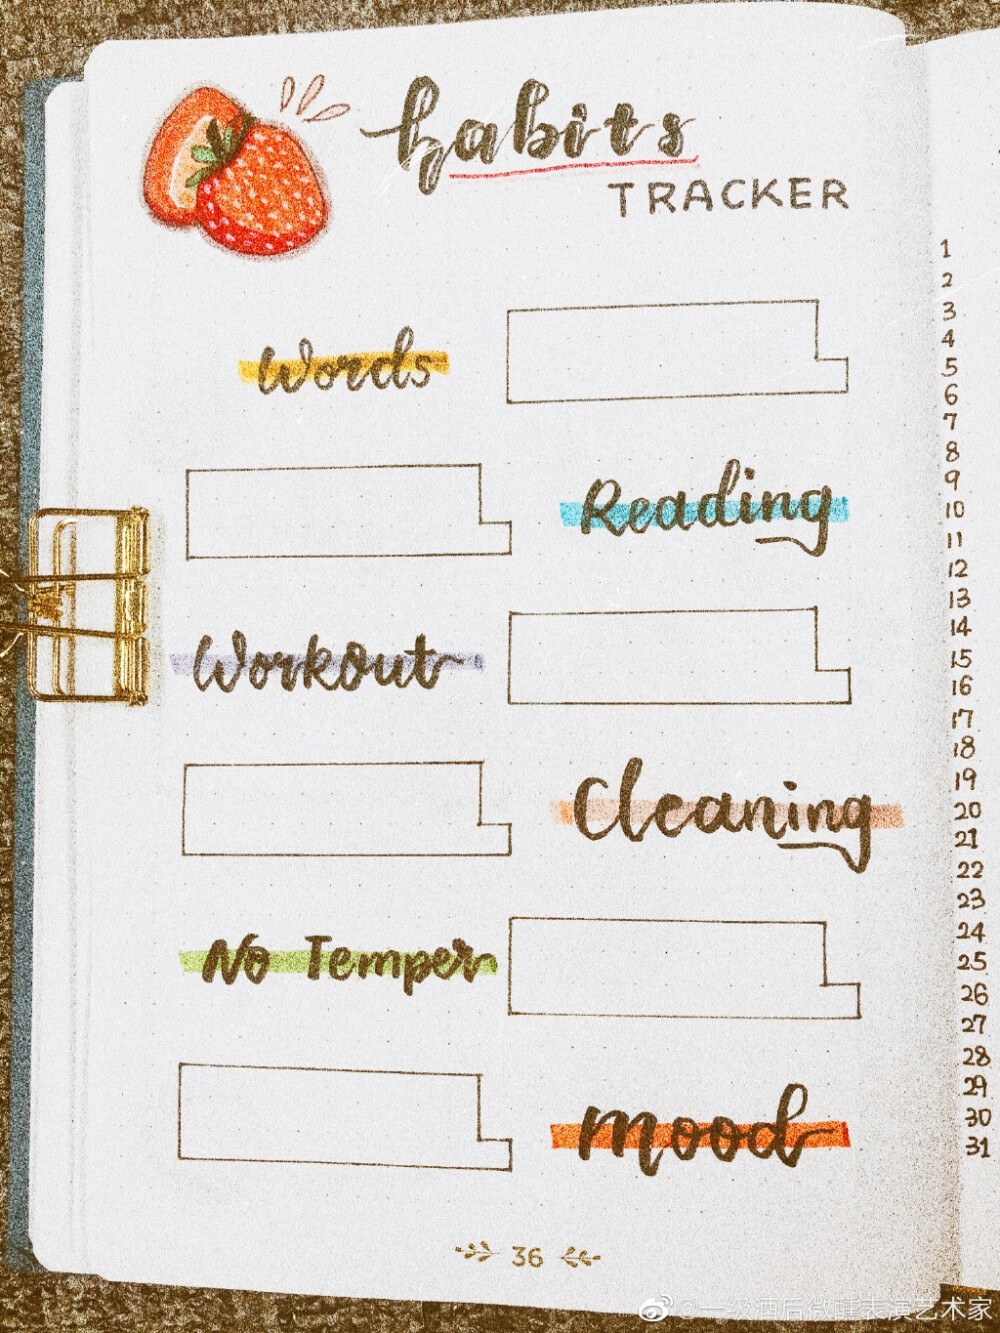 habits
TRACKER
Words
Reading
Workout
Cleaning
No Temper
mood
36
1
2
3
4
5
6
7
8
9
10
11
12
13
14
15
16
17
18
19
20
21
22
23
24
25
26
27
28
29
30
31
@一级酒后微醺表演艺术家